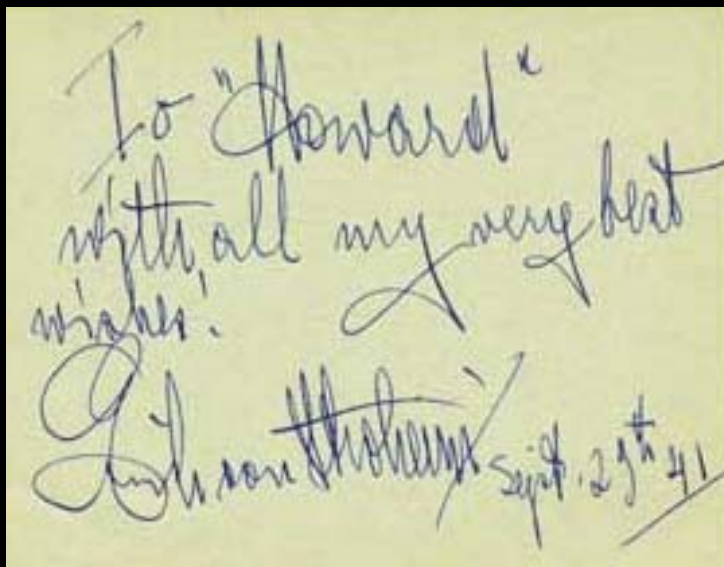 To "Howard"
with all my very best
wishes!
Erich von Stroheim Sept. 29th 41